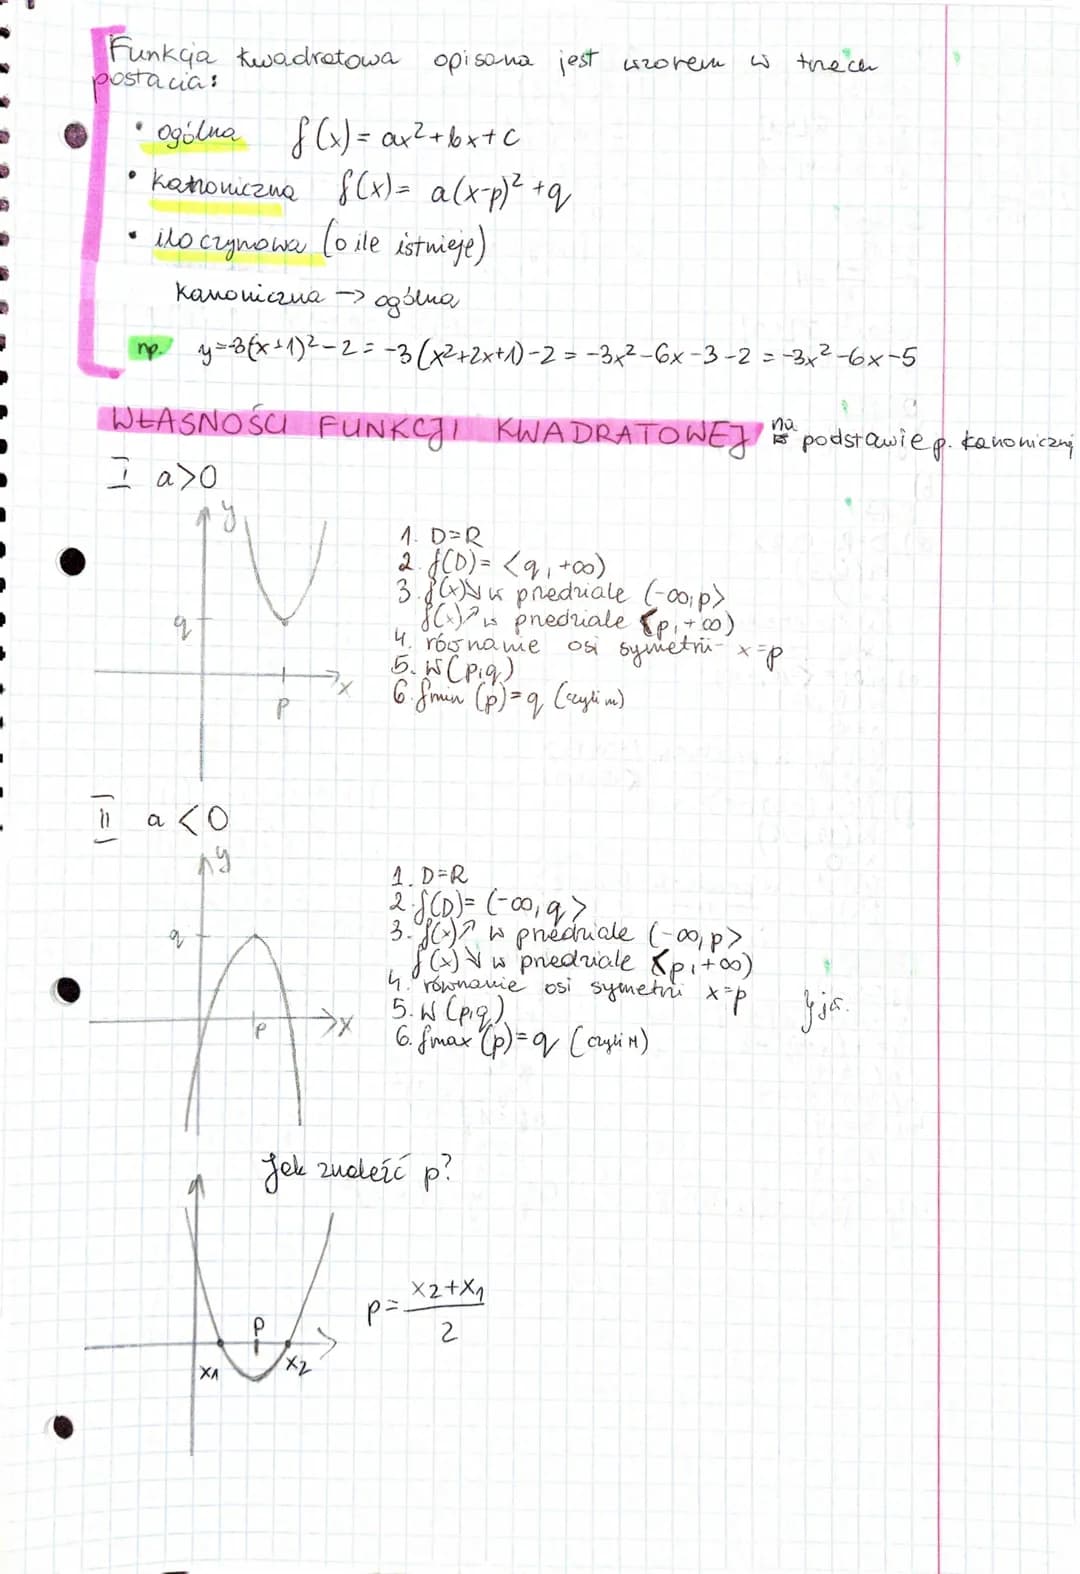 Funkcja kwadratowa opisana jest wzorem w trzech
postacia:
• ogólna f(x) = ax²+bx+c
• kanoniczna f(x) = a(x-p)² +q
• iloczynowa (o ile istnieje)
kanoniczna → ogólna
np. y=-3(x+1)²-2 = -3(x²+2x+1)-2 = -3x²-6x-3-2 = -3x²-6x-5
WŁASNOŚCI FUNKCJI KWADRATOWEJ na podstawie p. kanonicznej
I a>0
y
q
p
x
1. D=R
2. f(D)= <q,+∞)
3. f(x)↘ w przedziale (-∞,p>
f(x)↗ w przedziale <p,+∞)
4. równanie osi symetrii- x=p
5. W(p,q)
6. fmin (p)=q (czyli m)
II a<0
y
q
p
x
1. D=R
2. f(D)= (-∞,q>
3. f(x)↗ w przedziale (-∞,p>
f(x)↘ w przedziale <p,+∞)
4. równanie osi symetrii x=p
5. W(p,q)
6. fmax (p)=q (czyli M)
Jak znaleźć p?
p
x1
x2
p= x2+x1 / 2